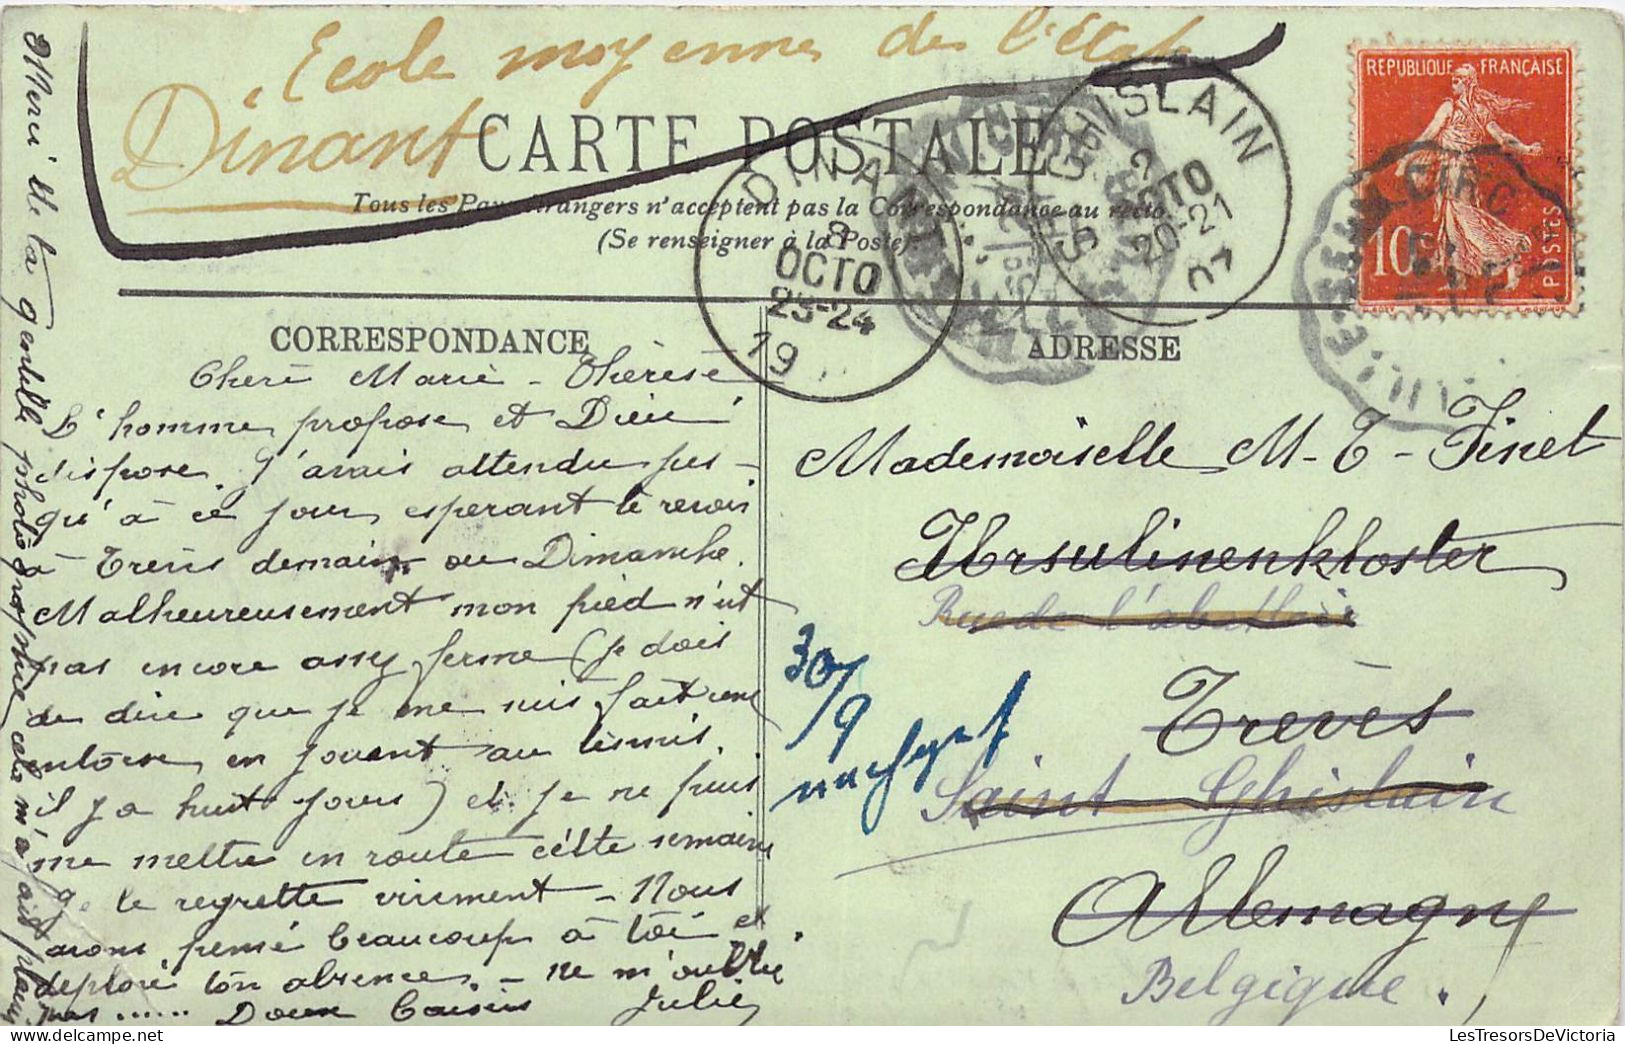 Ecole moyenne de l'Etat
Dinant
CARTE POSTALE
Tous les Pays étrangers n'acceptent pas la Correspondance au recto.
(Se renseigner à la Poste).
REPUBLIQUE FRANÇAISE
10
POSTES
ST GHISLAIN
2
OCTO
20-21
07
DINANT
3
OCTO
23-24
19
CORRESPONDANCE
ADRESSE
Chere Marie-Thérèse
L'homme propose et Dieu
dispose. J'avais attendu jus-
qu'à ce jour esperant te revoir
à Trèves demain ou Dimanche.
Malheureusement mon pied n'est
pas encore assez ferme (je dois
te dire que je me suis fait une
entorse en jouant au tennis.
il y a huit jours) et je ne puis
me mettre en route cette semaine
je le regrette vivement - Nous
avons pensé beaucoup à toi et
deploré ton absence. - Ne m'oublie
pas ...... Doux baisers Julie
Merci de ta gentille photographie cela m'a fait plaisir
Mademoiselle M-T-Finet
Ursulinenkloster
Rue de l'abattoir
30/9
Trèves
Saint Ghislain
Allemagne
Belgique.
LesTresorsDeVictoria